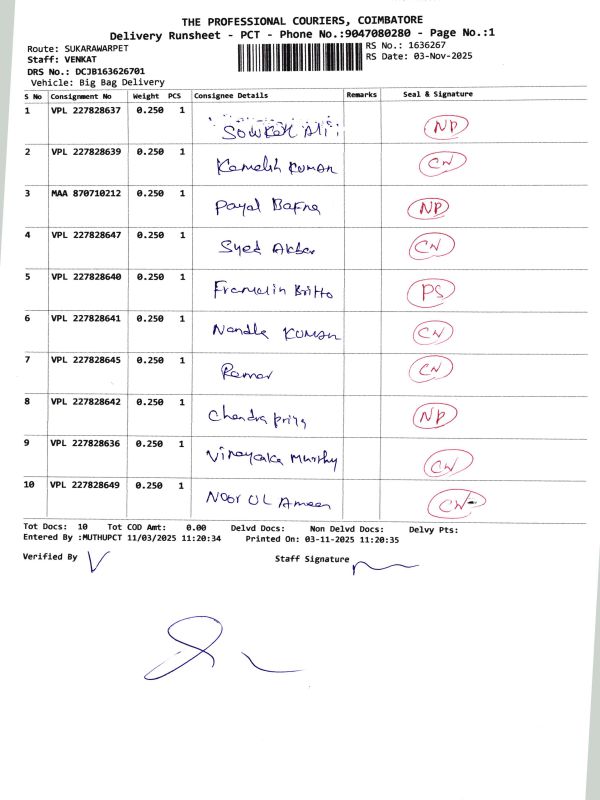 THE PROFESSIONAL COURIERS, COIMBATORE
Delivery Runsheet - PCT - Phone No.:9047080280 - Page No.:1
Route: SUKARAWARPET
RS No.: 1636267
Staff: VENKAT
RS Date: 03-Nov-2025
DRS No.: DCJB163626701
Vehicle: Big Bag Delivery
S No Consignment No Weight PCS Consignee Details Remarks Seal & Signature
1 VPL 227828637 0.250 1 Sowkat Ali NP
2 VPL 227828639 0.250 1 Kamalesh Kumar CN
3 MAA 870710212 0.250 1 Payal Bafna NP
4 VPL 227828647 0.250 1 Syed Akbar CN
5 VPL 227828640 0.250 1 Franklin Britto PS
6 VPL 227828641 0.250 1 Nandha Kumar CN
7 VPL 227828645 0.250 1 Ramar CN
8 VPL 227828642 0.250 1 Chandra priya NP
9 VPL 227828636 0.250 1 Vinayaka Murthy CN
10 VPL 227828649 0.250 1 Noor UL Ameen CN
Tot Docs: 10 Tot COD Amt: 0.00 Delvd Docs: Non Delvd Docs: Delvy Pts:
Entered By :MUTHUPCT 11/03/2025 11:20:34 Printed On: 03-11-2025 11:20:35
Verified By Staff Signature